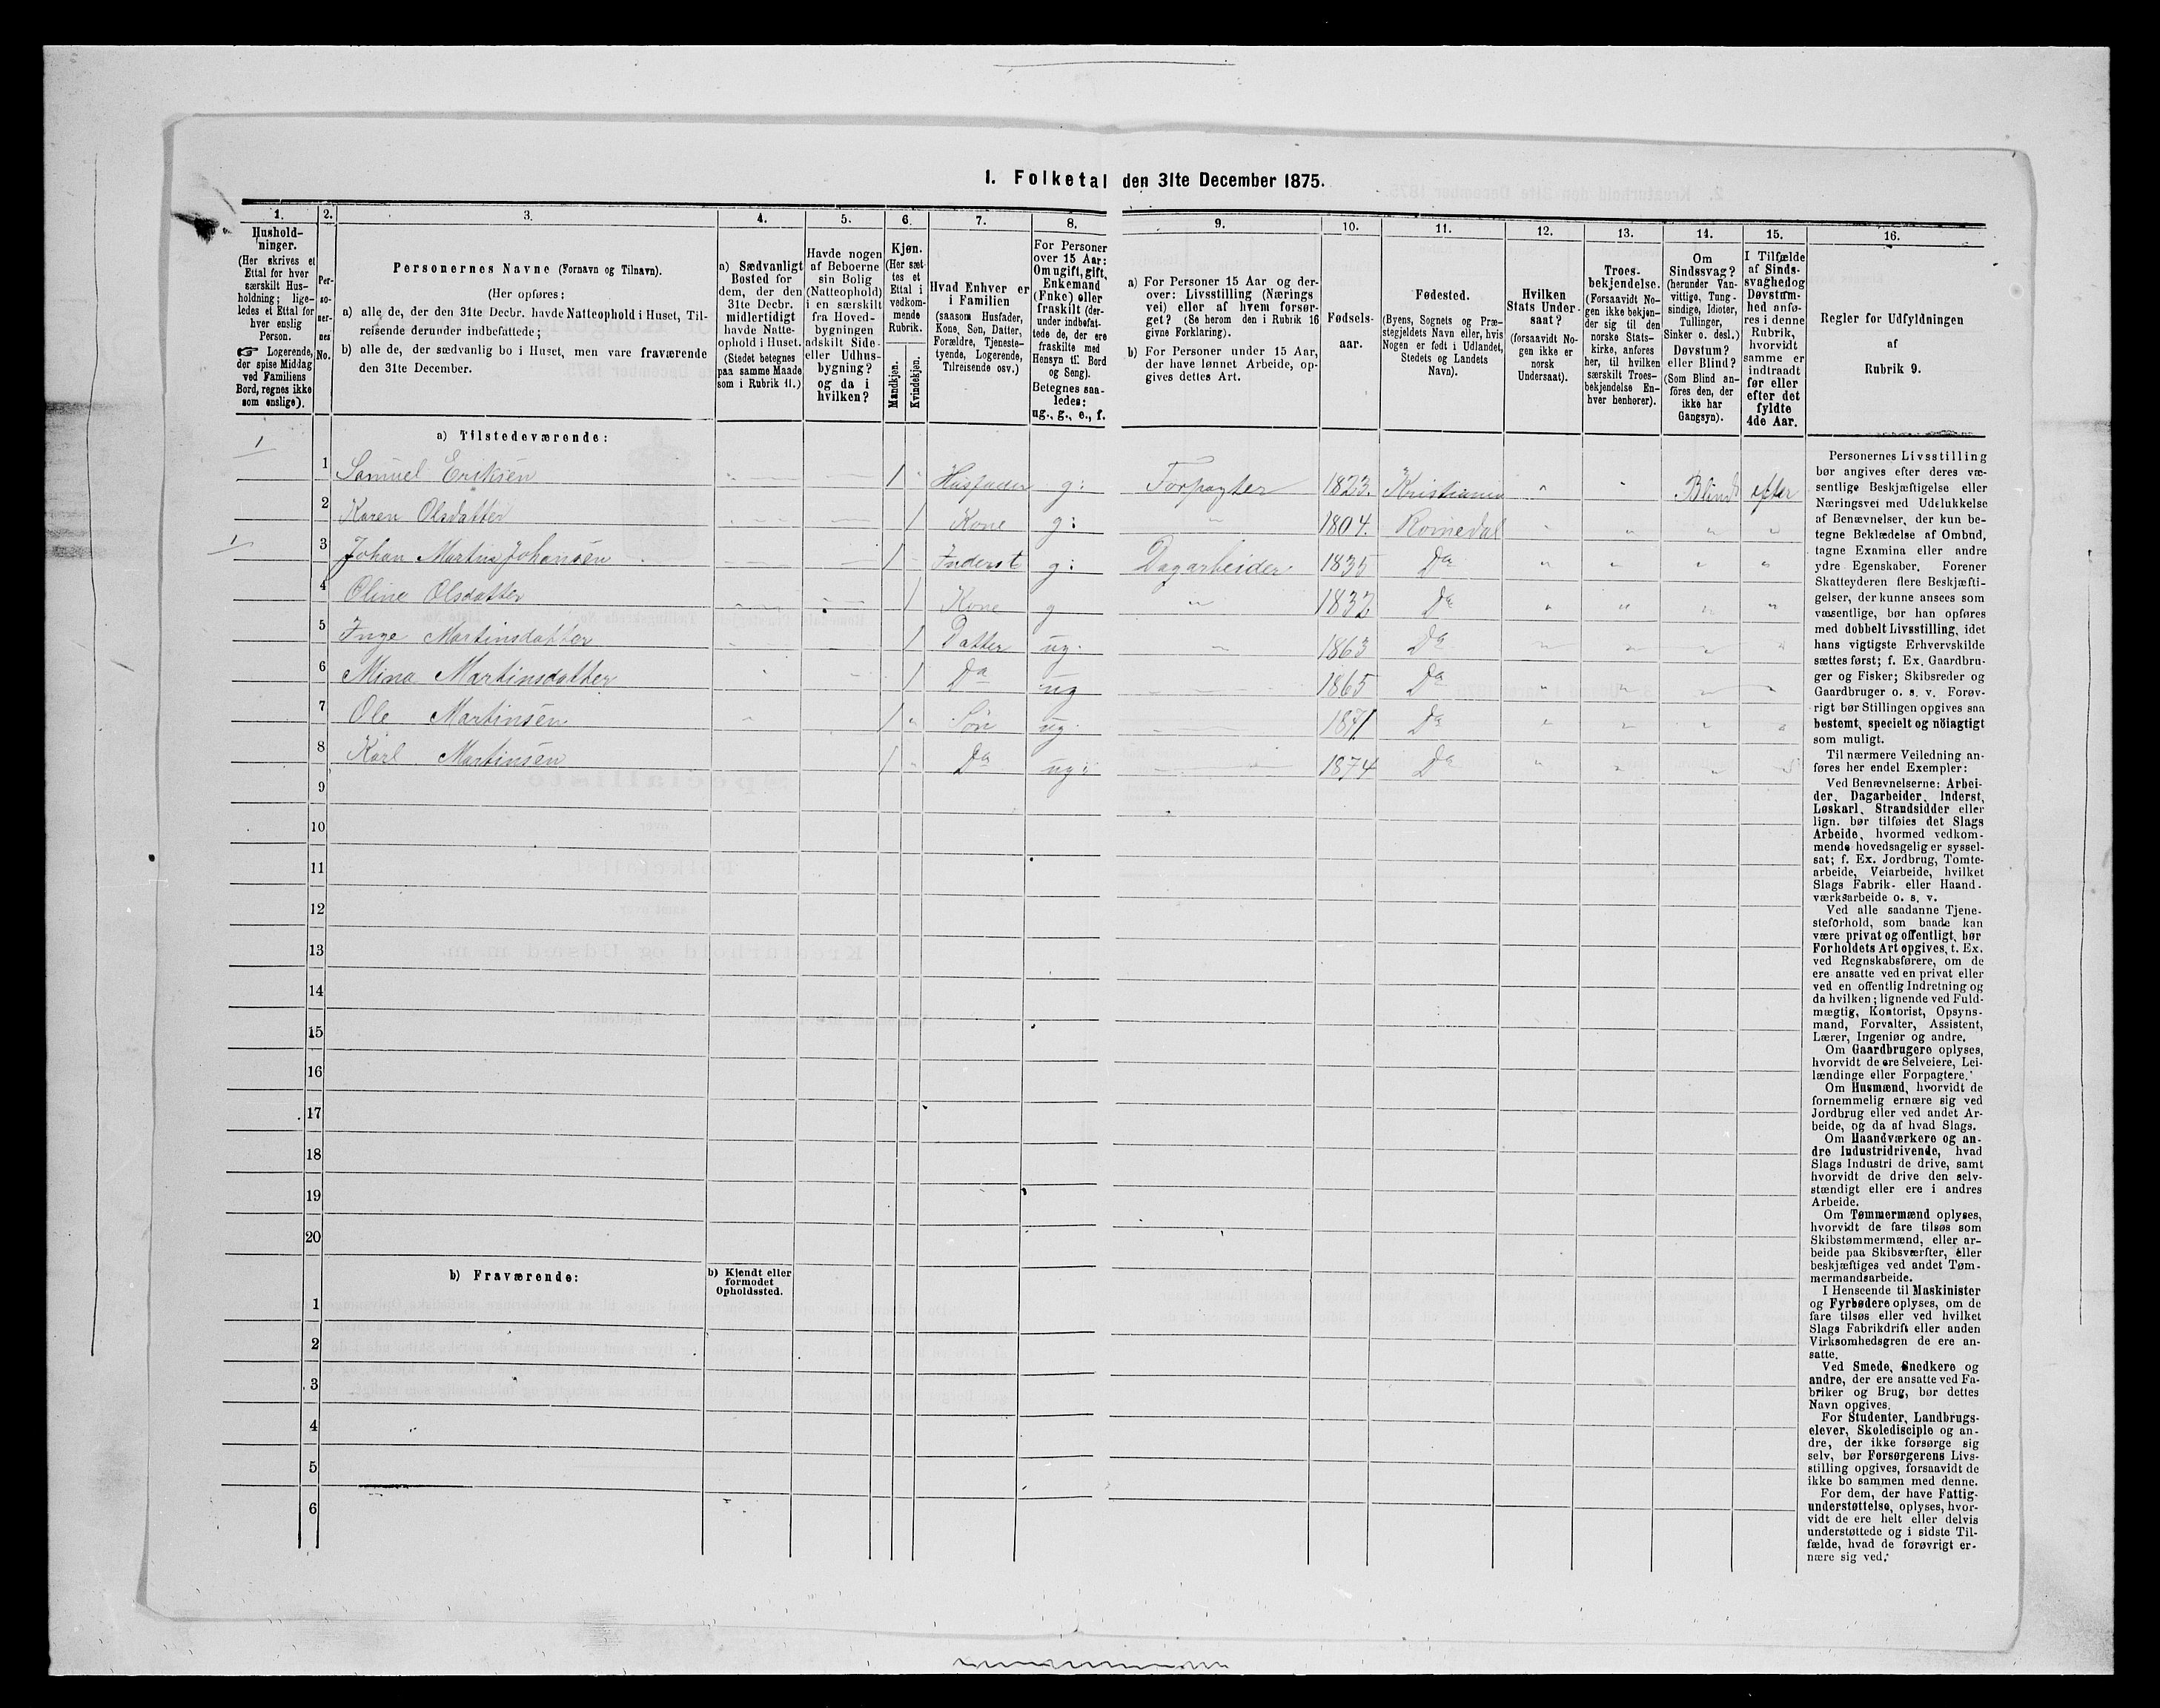 1. Folketal den 31te December 1875.
1. 2. 3. 4. 5. 6. 7. 8. 9. 10. 11. 12. 13. 14. 15. 16.
Hushold-
ninger.
(Her skrives et
Ettal for hver
særskilt Hus-
holdning; lige-
ledes et Ettal for
hver enslig
Person.
☞ Logerende,
der spise Middag
ved Familiens
Bord, regnes ikke
som enslige).
Per-
so-
ner-
nes
No.
Personernes Navne (Fornavn og Tilnavn).
(Her opføres:
a) alle de, der den 31te Decbr. havde Natteophold i Huset, Til-
reisende derunder indbefattede;
b) alle de, der sædvanlig bo i Huset, men vare fraværende
den 31te December.
a) Sædvanligt
Bosted for
dem, der den
31te Decbr.
midlertidigt
havde Natte-
ophold i Huset.
(Stedet betegnes
paa samme Maade
som i Rubrik 11.)
Havde nogen
af Beboerne
sin Bolig
(Natteophold)
i en særskilt
fra Hoved-
bygningen
adskilt Side-
eller Udhus-
bygning?
og da i
hvilken?
Kjøn.
(Her sæt-
tes et
Ettal i
vedkom-
mende
Rubrik.
Mandkjøn.
Kvindekjøn.
Hvad Enhver er
i Familien
(saasom Husfader,
Kone, Søn, Datter,
Forældre, Tjeneste-
tyende, Logerende,
Tilreisende osv.)
For Personer
over 15 Aar:
Om ugift, gift,
Enkemand
(Enke) eller
fraskilt (der-
under indbefat-
tede de, der ere
fraskilte med
Hensyn til Bord
og Seng).
Betegnes saa-
ledes:
ug., g., e., f.
a) For Personer 15 Aar og der-
over: Livsstilling (Nærings
vei) eller af hvem forsør-
get? (Se herom den i Rubrik 16
givne Forklaring).
b) For Personer under 15 Aar,
der have lønnet Arbeide, op-
gives dettes Art.
Fødsels-
aar.
Fødested.
(Byens, Sognets og Præ-
stegjeldets Navn eller, hvis
Nogen er født i Udlandet,
Stedets og Landets
Navn).
Hvilken
Stats Under-
saat?
(forsaavidt No-
gen ikke er
norsk
Undersaat).
Troes-
bekjendelse.
(Forsaavidt No-
gen ikke bekjen-
der sig til den
norske Stats-
kirke, anføres
her, til hvilken
særskilt Troes-
bekjendelse En-
hver henhører).
Om
Sindssvag?
(herunder Van-
vittige, Tung-
sindige, Idioter,
Tullinger,
Sinker o. desl.)
Døvstum?
eller Blind?
(Som Blind an-
føres den, der
ikke har
Gangsyn).
I Tilfælde
af Sinds-
svaghed og
Døvstum-
hed anfø-
res i denne
Rubrik,
hvorvidt
samme er
indtraadt
før eller
efter det
fyldte
4de Aar.
Regler for Udfyldningen
af
Rubrik 9.
a) Tilstedeværende:
1 1 Samuel Eriksen 1 Husfader g: Forpagter 1823. Kristiania Blind efter
2 Karen Olsdatter 1 Kone g: " 1804. Romedal
1 3 Johan Martin Johansen 1 Inderst g: Dagarbeider 1835 Da
4 Oline Olsdatter 1 Kone g " 1832 Da
5 Inge Martinsdatter 1 Datter ug. " 1863 Da
6 Mina Martinsdatter 1 Da ug 1865 Da
7 Ole Martinsen 1 Søn ug. 1871 Da
8 Karl Martinsen 1 Da ug: 1874 Da
9
10
11
12
13
14
15
16
17
18
19
20
b) Fraværende:
b) Kjendt eller
formodet
Opholdssted.
1
2
3
4
5
6
Personernes Livsstilling
bør angives efter deres væ-
sentlige Beskjæftigelse eller
Næringsvei med Udelukkelse
af Benævnelser, der kun be-
tegne Beklædelse af Ombud,
tagne Examina eller andre
ydre Egenskaber. Forener
Skatteyderen flere Beskjæfti-
gelser, der kunne ansees som
væsentlige, bør han opføres
med dobbelt Livsstilling, idet
hans vigtigste Erhvervskilde
sættes først; f. Ex. Gaardbru-
ger og Fisker; Skibsreder og
Gaardbruger o. s. v. Forøv-
rigt bør Stillingen opgives saa
bestemt, specielt og nöiagtigt
som muligt.
Til nærmere Veiledning an-
føres her endel Exempler:
Ved Benævnelserne: Arbei-
der, Dagarbeider, Inderst,
Løskarl, Strandsidder eller
lign. bør tilføies det Slags
Arbeide, hvormed vedkom-
mende hovedsagelig er syssel-
sat; f. Ex. Jordbrug, Tomte-
arbeide, Veiarbeide, hvilket
Slags Fabrik- eller Haand-
værksarbeide o. s. v.
Ved alle saadanne Tjene-
steforhold, som baade kan
være privat og offentligt, bør
Forholdets Art opgives, t. Ex.
ved Regnskabsførere, om de
ere ansatte ved en privat eller
ved en offentlig Indretning og
da hvilken; lignende ved Fuld-
mægtig, Kontorist, Opsyns-
mand, Forvalter, Assistent,
Lærer, Ingeniør og andre.
Om Gaardbrugere oplyses,
hvorvidt de ere Selveiere, Lei-
lændinge eller Forpagtere.
Om Husmænd, hvorvidt de
fornemmelig ernære sig ved
Jordbrug eller ved andet Ar-
beide, og da af hvad Slags.
Om Haandværkere og an-
dre Industridrivende, hvad
Slags Industri de drive, samt
hvorvidt de drive den selv-
stændigt eller ere i andres
Arbeide.
Om Tømmermænd oplyses,
hvorvidt de fare tilsøs som
Skibstømmermænd, eller ar-
beide paa Skibsværfter, eller
beskjæftiges ved andet Tøm-
mermandsarbeide.
I Henseende til Maskinister
og Fyrbødere oplyses, om de
fare tilsøs eller ved hvilket
Slags Fabrikdrift eller anden
Virksomhedsgren de ere an-
satte.
Ved Smede, Snedkere og
andre, der ere ansatte ved Fa-
briker og Brug, bør dettes
Navn opgives.
For Studenter, Landbrugs-
elever, Skoledisciple og an-
dre, der ikke forsørge sig
selv, bør Forsørgerens Livs-
stilling opgives, forsaavidt de
ikke bo sammen med denne.
For dem, der have Fattig-
understøttelse, oplyses, hvor-
vidt de ere helt eller delvis
understøttede og i sidste Til-
fælde, hvad de forøvrigt er-
nære sig ved.